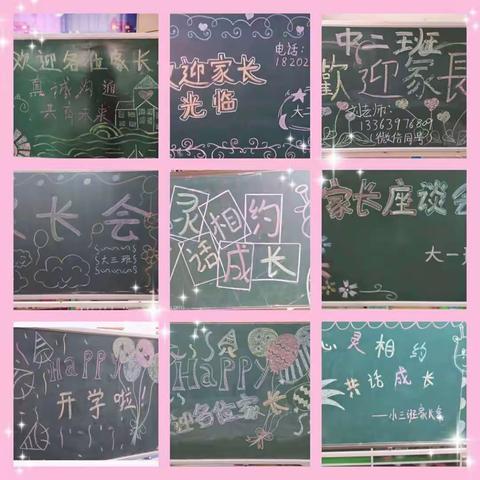 欢迎各位家长
真诚沟通
共育未来
电话:
18202
欢迎家长
光临
大二
中二班
歡迎家長
刘老师:
(微信同号)
长会
大三班
灵相约
话成长
家长座谈会
大一班
HAPPY
开学啦!
HAPPY
迎各位家长
心灵相约
共话成长
——小三班家长会